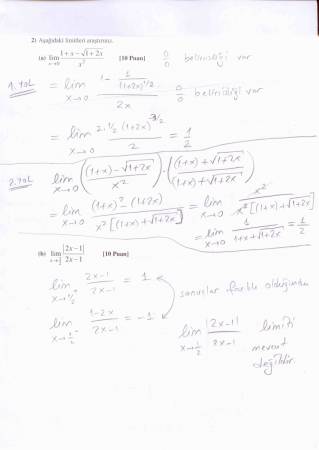 2) Aşağıdaki limitleri araştırınız.
(a) lim x→0 (1+x-√1+2x)/x² [10 Puan] 0/0 belirsizliği var
1.YOL = lim x→0 (1 - 1/(1+2x)^1/2)/2x 0/0 belirsizliği var
= lim x→0 (2·1/2 (1+2x)^-3/2)/2 = 1/2
2.YOL lim x→0 ((1+x)-√1+2x)/x²) · ((1+x)+√1+2x)/((1+x)+√1+2x)
= lim x→0 ((1+x)²-(1+2x))/(x²[(1+x)+√1+2x]) = lim x→0 x²/(x²[(1+x)+√1+2x])
= lim x→0 1/(1+x+√1+2x) = 1/2
(b) lim x→1/2 |2x-1|/(2x-1) [10 Puan]
lim x→1/2+ (2x-1)/(2x-1) = 1
sonuçlar farklı olduğundan
lim x→1/2- (1-2x)/(2x-1) = -1
lim x→1/2 |2x-1|/(2x-1) limiti
mevcut
değildir.